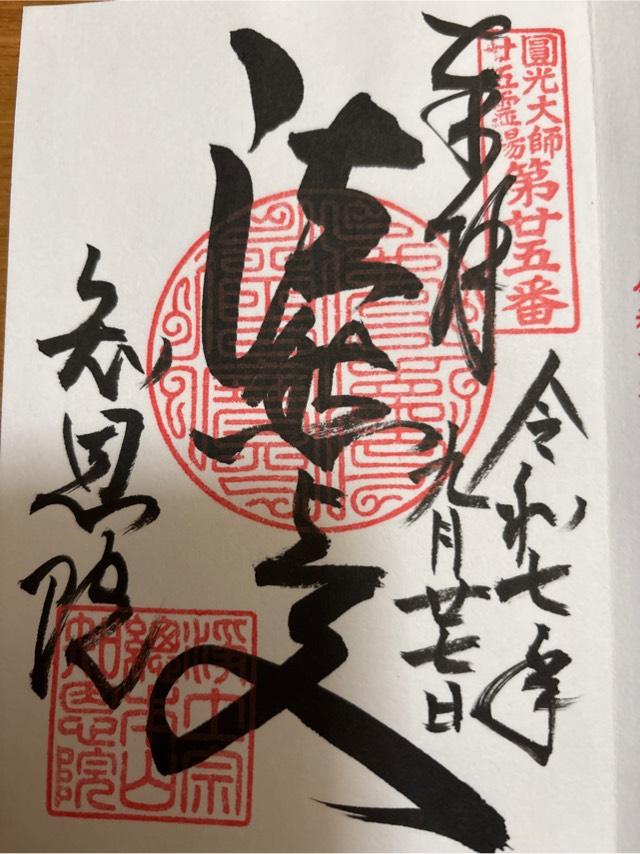 圓光大師
廿五霊場
第廿五番
奉拝
令和七年
九月廿七日
法然上人
知恩院
浄土宗
總本山
知恩院